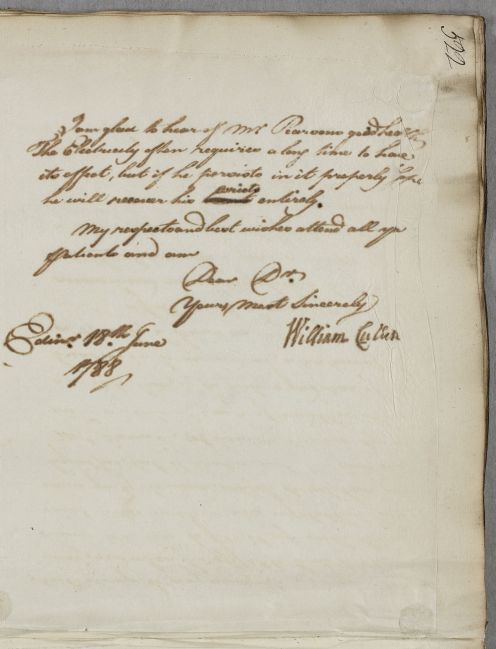 522
I am glad to hear of Mr Pearsons good health
The Electricity often requires a long time to have
its effect, but if he persists in it properly I hope
he will recover his entirely.
My respects and best wishes attend all yr
patients and am
Dear Dr.
Yours Most Sincerely
William Cullen
Edinr. 18.th June
1788